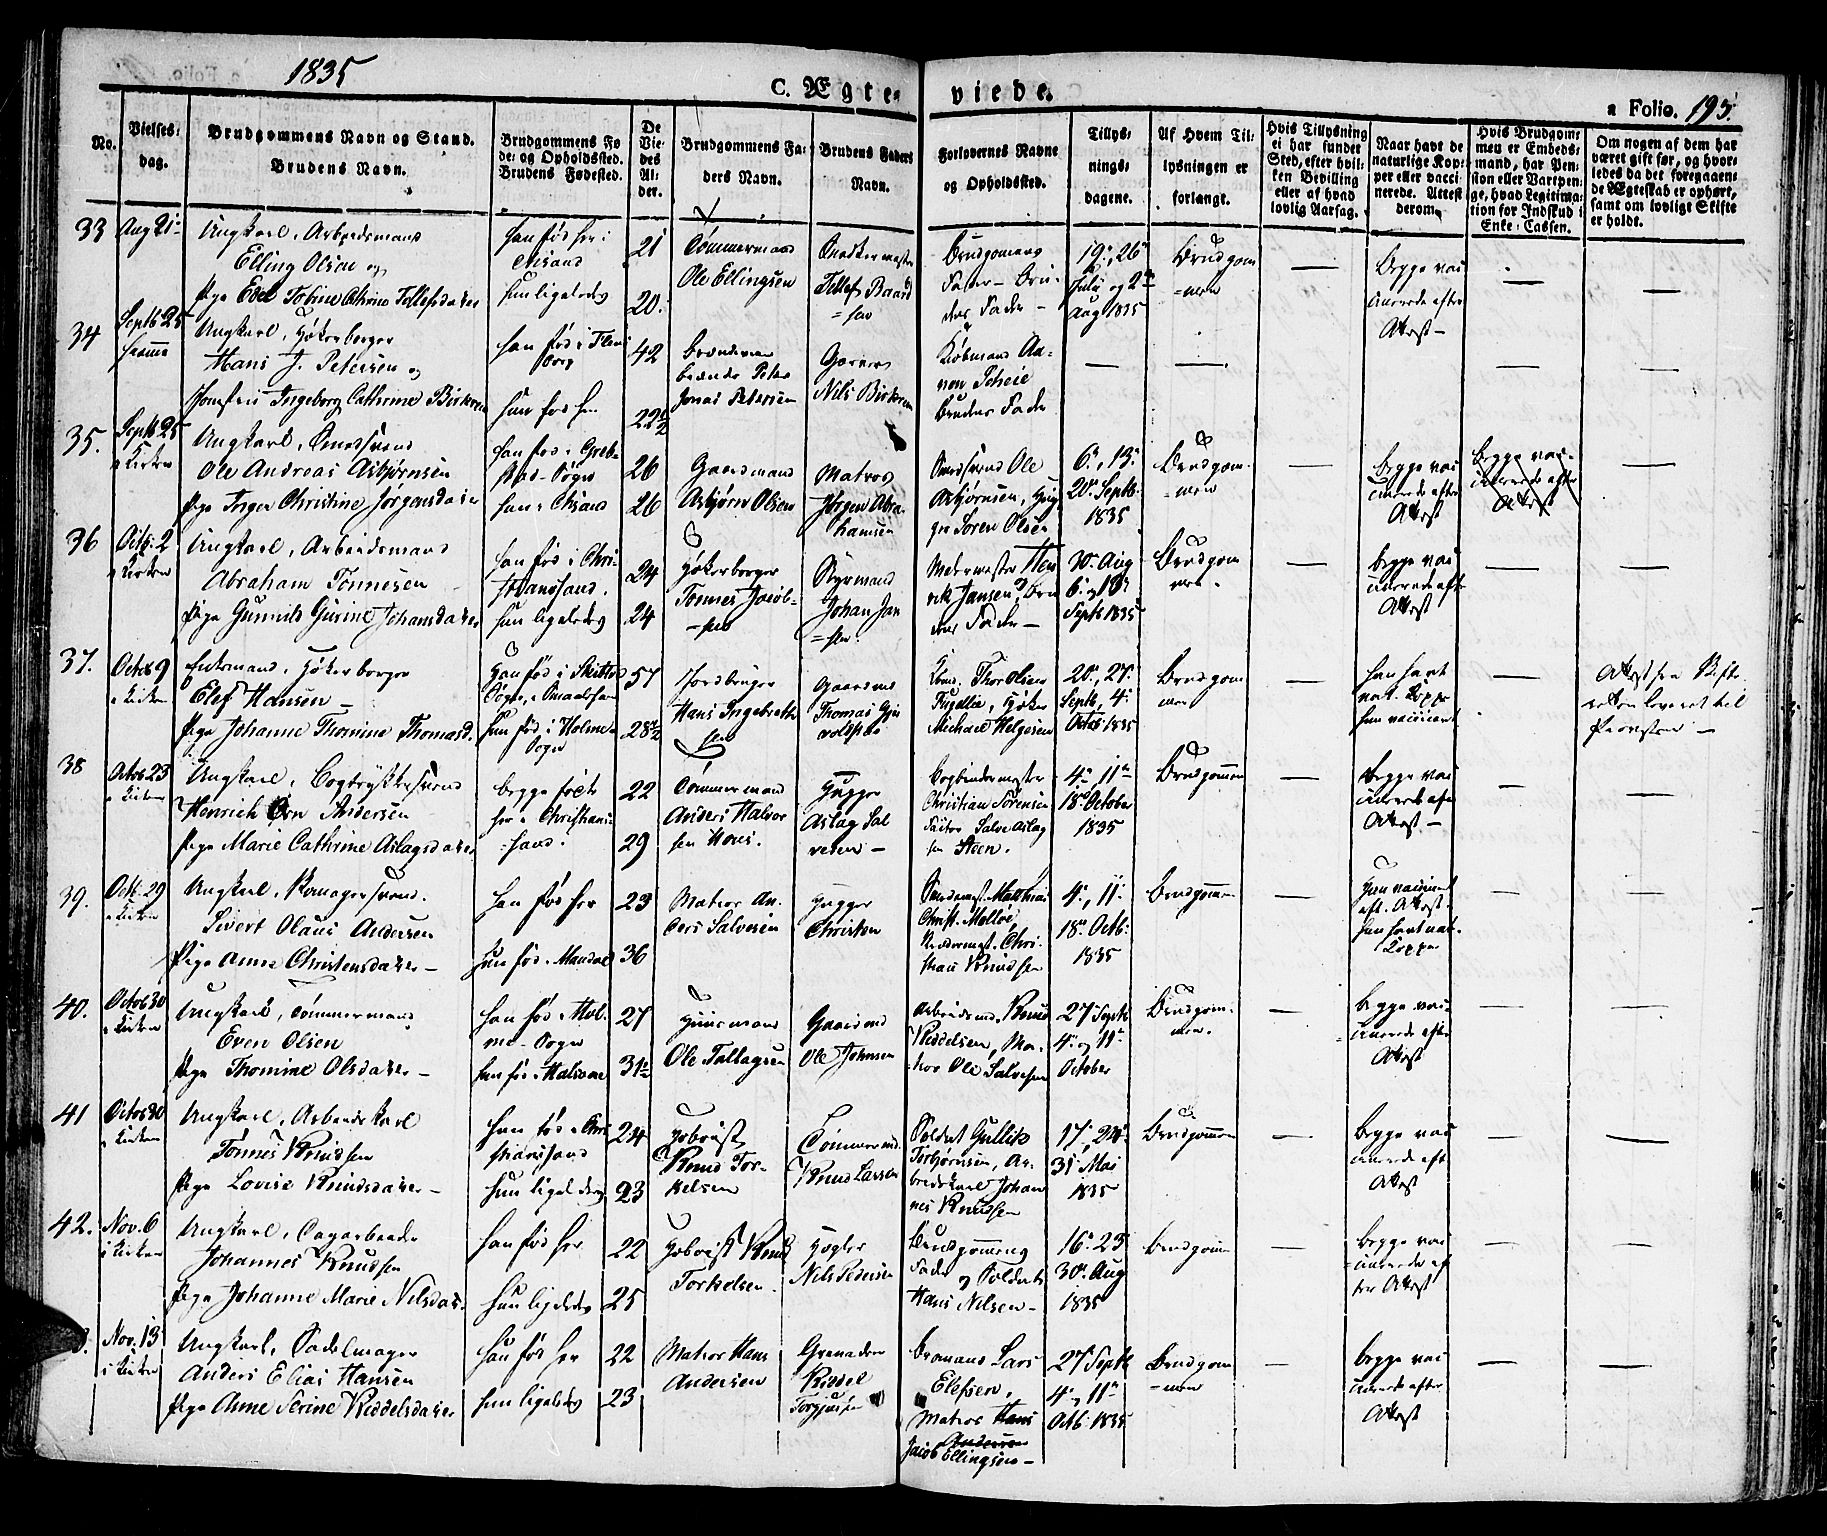 1835
C. Ægteviede.
a Folio. 195.
No.
Vielses-dag.
Brudgommens Navn og Stand.
Brudens Navn.
Brudgommens Føde- og Opholdssted.
Brudens Fødested.
De Viedes Alder.
Brudgommens Faders Navn.
Brudens Faders Navn.
Forlovernes Navne og Opholdsted.
Tillysningsdagene.
Af Hvem Tillysningen er forlangt.
Hvis Tillysning ei har funder Sted, efter hvilken Bevilling eller af hvad lovlig Aarsag.
Naar havt de naturlige Kopper eller vaccinerede. Attest derom.
Hvis Brudgommen er Embedsmand, har Pension eller Vartpenge, hvad Legitimation for Indskud i Enke-Cassen.
Om nogen af dem har været gift før, og hvorledes da det foregaaende Ægteskab er ophørt, samt om lovligt Skifte er holdt.
33 Aug 21
Ungkarl, Arbeidsmand
Elling Olsen og
Pige Edel Tobine Cthrine Tellefsdatter
han fød her i Chsand
hun ligeledes
21
20
Tømmermand
Ole Ellingsen
Tellef Baardsen
Brudgomens Fader - Brudens Fader -
19., 26 Juli og 2 Aug 1835
Brudgommen
Begge vaccinerede efter Attest -
34 Septb 25
Ungkarl, Høkerborger
Hans J. Petersen og
Jomfru Ingeborg Cathrine Birkeren
han fød i
hun fød her
42
22½
Peter Jonas Petersen
Nils Birkeren
Kiøbmand Aanon Scheie
Brudens Fader
35. Septb 25 i Kirken
Ungkarl,
Ole Andreas Asbjørnsen
Pige Inger Christine Jørgensdatter
hun i Chsand
26
26
Gaardmand
Asbjørn Olsen
Matros
Jørgen Abrahamsen
Ole Asbjørnsen,
Søren Olsen
6., 13. 20. Septb. 1835
Brudgommen
Begge vaccinerede efter Attest
Begge vaccinerede efter Attest
36 Octb. 2 i Kirken
Ungkarl, Arbeidsmand
Abraham Tønnesen
Pige Gunnild Gurine Johansdatter
han fød i Christiansand.
hun ligeledes
24
24
Høkerborger
Tønnes Jacobsen
Styrmand
Johan Jansen
Henrik Jansen, Brudens Fader -
30. Aug 6. og 13. Septb 1835
Brudgommen
Begge vaccinerede efter Attest
37. Octob 9 i Kirken
Enkemand, Høkerborger
Elef Hansen -
Pige Johanne Thomine Thomasd.
hun fød i Holme Sogn
57
28½
Hans Ingebrethsen
Gaardmd
Thomas
Thor Olsen
Høker
Michael Helgesen
20., 27. Septb, 4. Octob 1835
Brudgommen
han havt nat. Kopper
hun vaccineret
Attest fra Skifteretten leveret til Provsten -
38 Octob 23 i Kirken
Ungkarl, Bogtrykkersvend
Henrich Ørn Andersen
Pige Marie Cathrine Aslagsdatter
begge fødte her i Christiansand.
22
29
Tømmermand
Anders Halvorsen
Aslag Salvesen -
Bogbindermester
Christian Sørensen
Salve Aslagsen Steen.
4., 11. 18. October 1835
Brudgommen
Begge vaccinerede efter Attest -
39. Octb. 29 i Kirken
Ungkarl, svend.
Sivert Olaus Andersen
Pige Anne Christensdatter -
han fød her
hun fød i Mandal
23
36
Matros Anders Salvesen
Christen
Matthias Christ. Molløe,
Christian Knudsen
4., 11. 18. Octb. 1835
Brudgommen
hun vaccineret eft. Attest.
han havt nat. Kopper
40. Octob 30 i Kirken
Ungkarl, Tømmermand
Even Olsen
Pige Thomine Olsdatter -
han fød i Holme-Sogn
27
31½
Huusmand
Ole Tallagsen
Gaardmd
Ole Johnsen
Arbeidsmd. Knud Keddelsen, Matros Ole Salvesen
27 Septb 4. og 11. October
Brudgommen.
Begge vaccinerede efter Attest
41 Octob 30 i Kirken
Ungkarl, Arbeidskarl
Tønnes Knudsen
Pige Lovise Knudsdatter -
han fød i Christiansand
hun ligeledes
24
23
Knud Torkelsen
Tømmermd.
Knud Larsen
Soldat Gullik Torbjørnsen, Arbeidskarl Johannes Knudsen
17. 24. 31. Mai 1835
Brudgommen
Begge vaccinerede eft Attest
42. Nov. 6 i Kirken
Ungkarl, Dagarbeider
Johannes Knudsen
Pige Johanne Marie Nilsdatter.
han fød her
hun ligeledes
22
25
Knud Torkelsen
Nils Pedersen
Brudgommens Fader og Soldat Hans Nilsen -
16. 23 30. Aug 1835
Brudgommen
Begge vaccinerede efter Attest
3. Nov. 13 i Kirken
Ungkarl, Sadelmager
Anders Elias Hansen
Pige Anne Serine Keddelsdatter
han fød her
hun ligeledes
22
23
Matros Hans Andersen
Grenader
Keddel
Lars Elefsen,
Matros Hans Andersen
Jacob Ellingsen -
27 Septb 4., 11. Octb. 1835
Brudgommen
Begge vaccinerede efter Attest